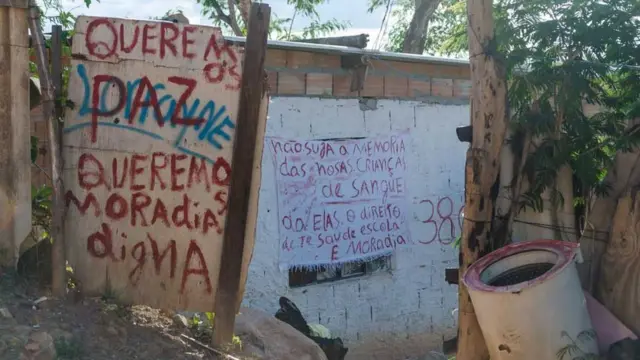 QUEREMOS
PAZ
QUEREMOS
MORADIA
dIGNA
NãO SUJA A MEMORIA
DAS NOSAS CRIANÇAS
DE SANGUE
dA ELAS O diREITO
de TE SAUdE ESCOLA
E MORADIA
38